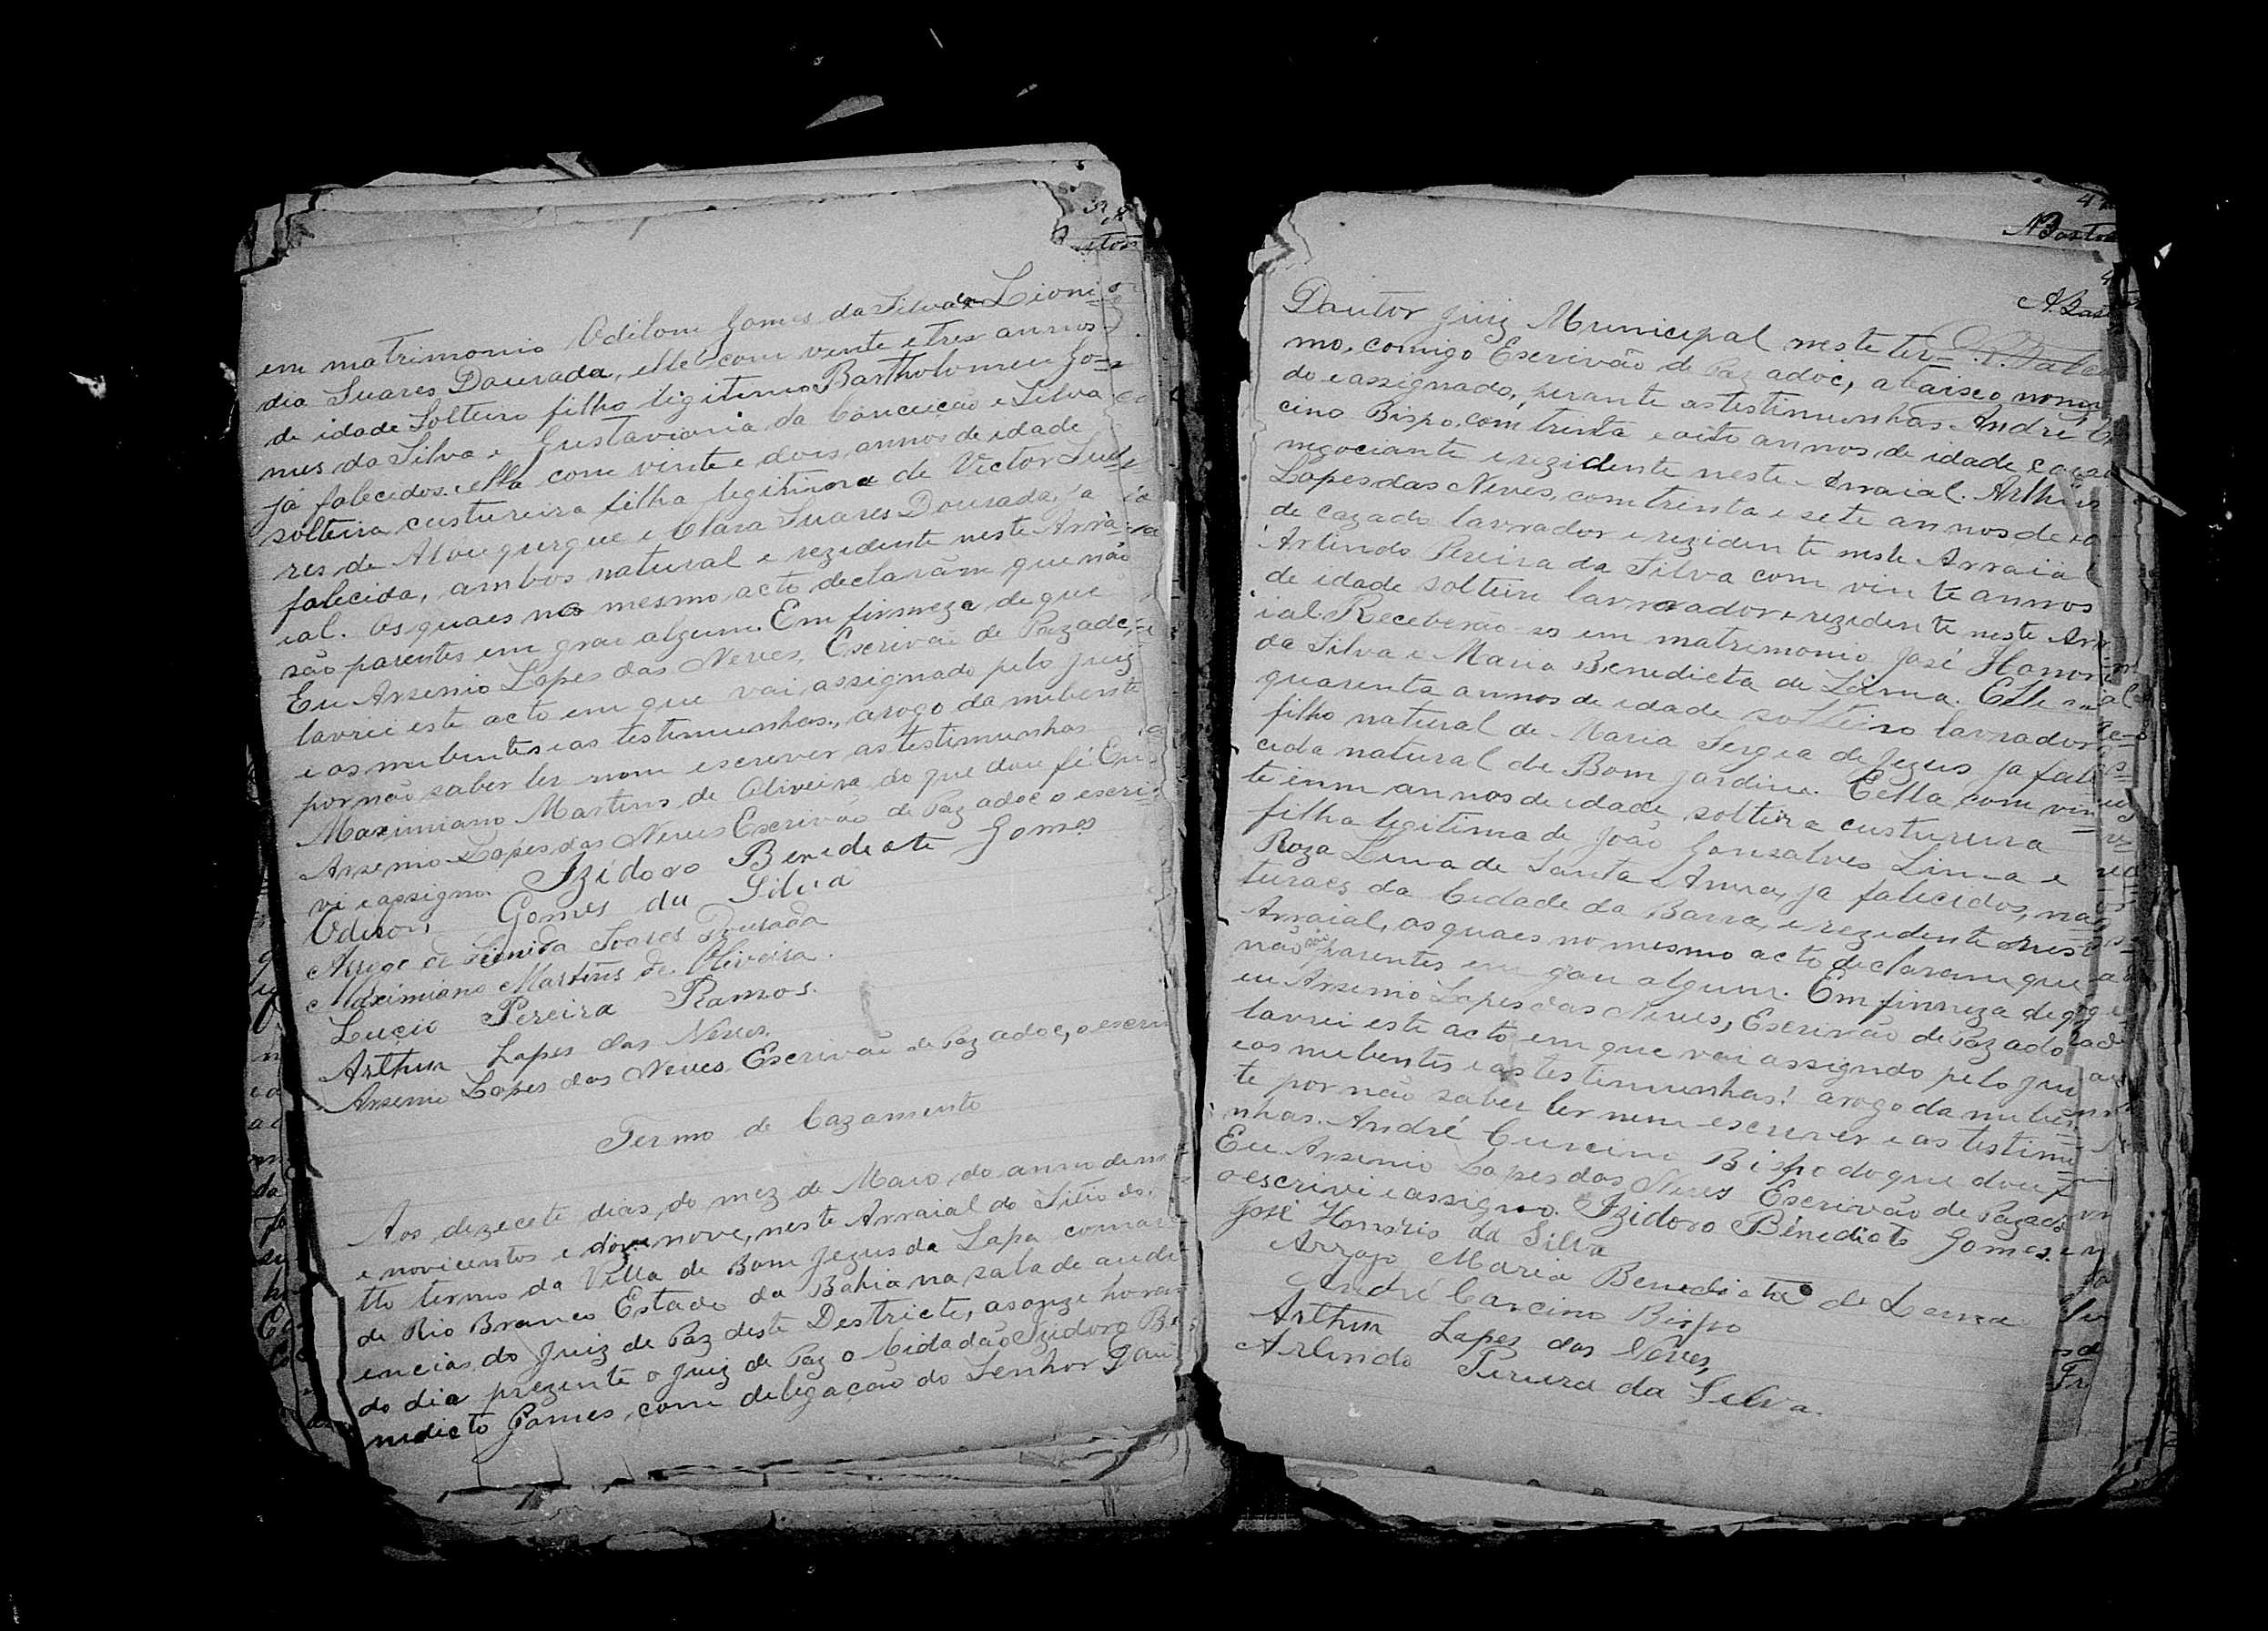 em matrimonio Odilom Gomes da Silva da Lioni
dia Suares Dourada, elle com vente e tres annos
de idade Solteiro filho legitimo Bartholomeu Go=
mes da Silva e Gustaviania da Conceicão e Silva
já falecidos. ella com vinte e dois annos de idade
solteira custureira filha legitima de Victor Sua
res de Albuquerque e Clara Suares Dourada, ja
falecida, ambos natural e rezidente neste Arra
ial. Os quaes no mesmo acto declarãm que não
são parentes em grau algum. Em firmeza de que
Eu Arsenio Lopes das Neves, Escrivão de Paz adoc,
lavrei este acto em que vai assignado pelo Juiz
e os nubentes e as testimunhas, arogo da nubente
por não saber ler nem escrever as testimunhas
Maximiano Martins de Oliveira do que dou fé Eu
Arsenio Lopes das Neves Escrivão de Paz adoc o escri
vi e assigno. Izidoro Benedicto Gomes
Odilon Gomes da Silva
Arrogo de Soares Dourada
Maximiano Martins de Oliveira.
Lucio Pereira Ramos.
Arthur Lopes das Neves.
Arsenio Lopes das Neves Escrivão de Paz adoc, o escrivi
Termo de Cazamento
Aos dezecete dias, do mez de Maio do anno de mil
e novicentos e nove, neste Arraial do Sitio do
tto termo da Villa de Bom Jezus da Lapa comarca
de Rio Branco Estado da Bahia na sala de audi
encias do Juiz de Paz deste Destricto, as onze horas
do dia prezente o Juiz de Paz o Cidadão Izidoro Be
nedicto Gomes, com delegacão do Senhor Dou
Doutor Juiz Municipal neste ter=
mo, comigo Escrivão de Paz adoc, abaixo nomia
do e assignado, perante as testimunhas André C
cino Bispo, com trinta e oito annos de idade, cazado
negociante e rezidente neste Arraial. Arthur
Lopes das Neves, com trinta e sete annos de ida
de cazado lavrador e rezidente neste Arraial
Arlindo Pereira da Silva com vinte annos
de idade solteiro lavrador e rezidente neste Arra
ial. Receberão-se em matrimonio José Honorio
da Silva e Maria Benedicta de Lima. Elle com
quarenta annos de idade solteiro lavrador
filho natural de Maria Sergia de Jezus ja fale
cida natural de Bom Jardim. Eella com vin
te inm annos de idade solteira custureira
filha legitima de João Gonsalves Lima e
Roza Lima de Santa Anna, ja falecidos, na
turaes da Cidade da Barra, e rezidente neste
Arraial, os quaes no mesmo acto declaram que
não são parentes em grau algum. Em firmeza de que
eu Arsenio Lopes das Neves, Escrivão de Paz adoc
lavrei este acto em que vai assigndo pelo Juiz
e os nubentes e as testimunhas! arogo da nuben
te por não saber ler nem escrever e as testimu
nhas. André Curcino Bispo do que dou f
Eu Arsenio Lopes das Neves Escrivão de Paz adoc
o escrivi e assigno. Izidoro Benedicto Gomes.
José Honorio da Silva
Arrogo Maria Benedicta de Lema
André Carcino Bispo
Arthur Lopes das Neves,
Arlindo Pereira da Silva.